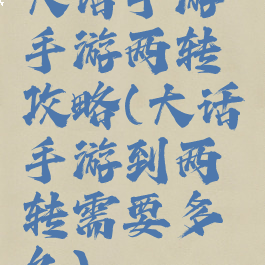 大话手游
手游两转
攻略(大话
手游到两
转需要多
久)